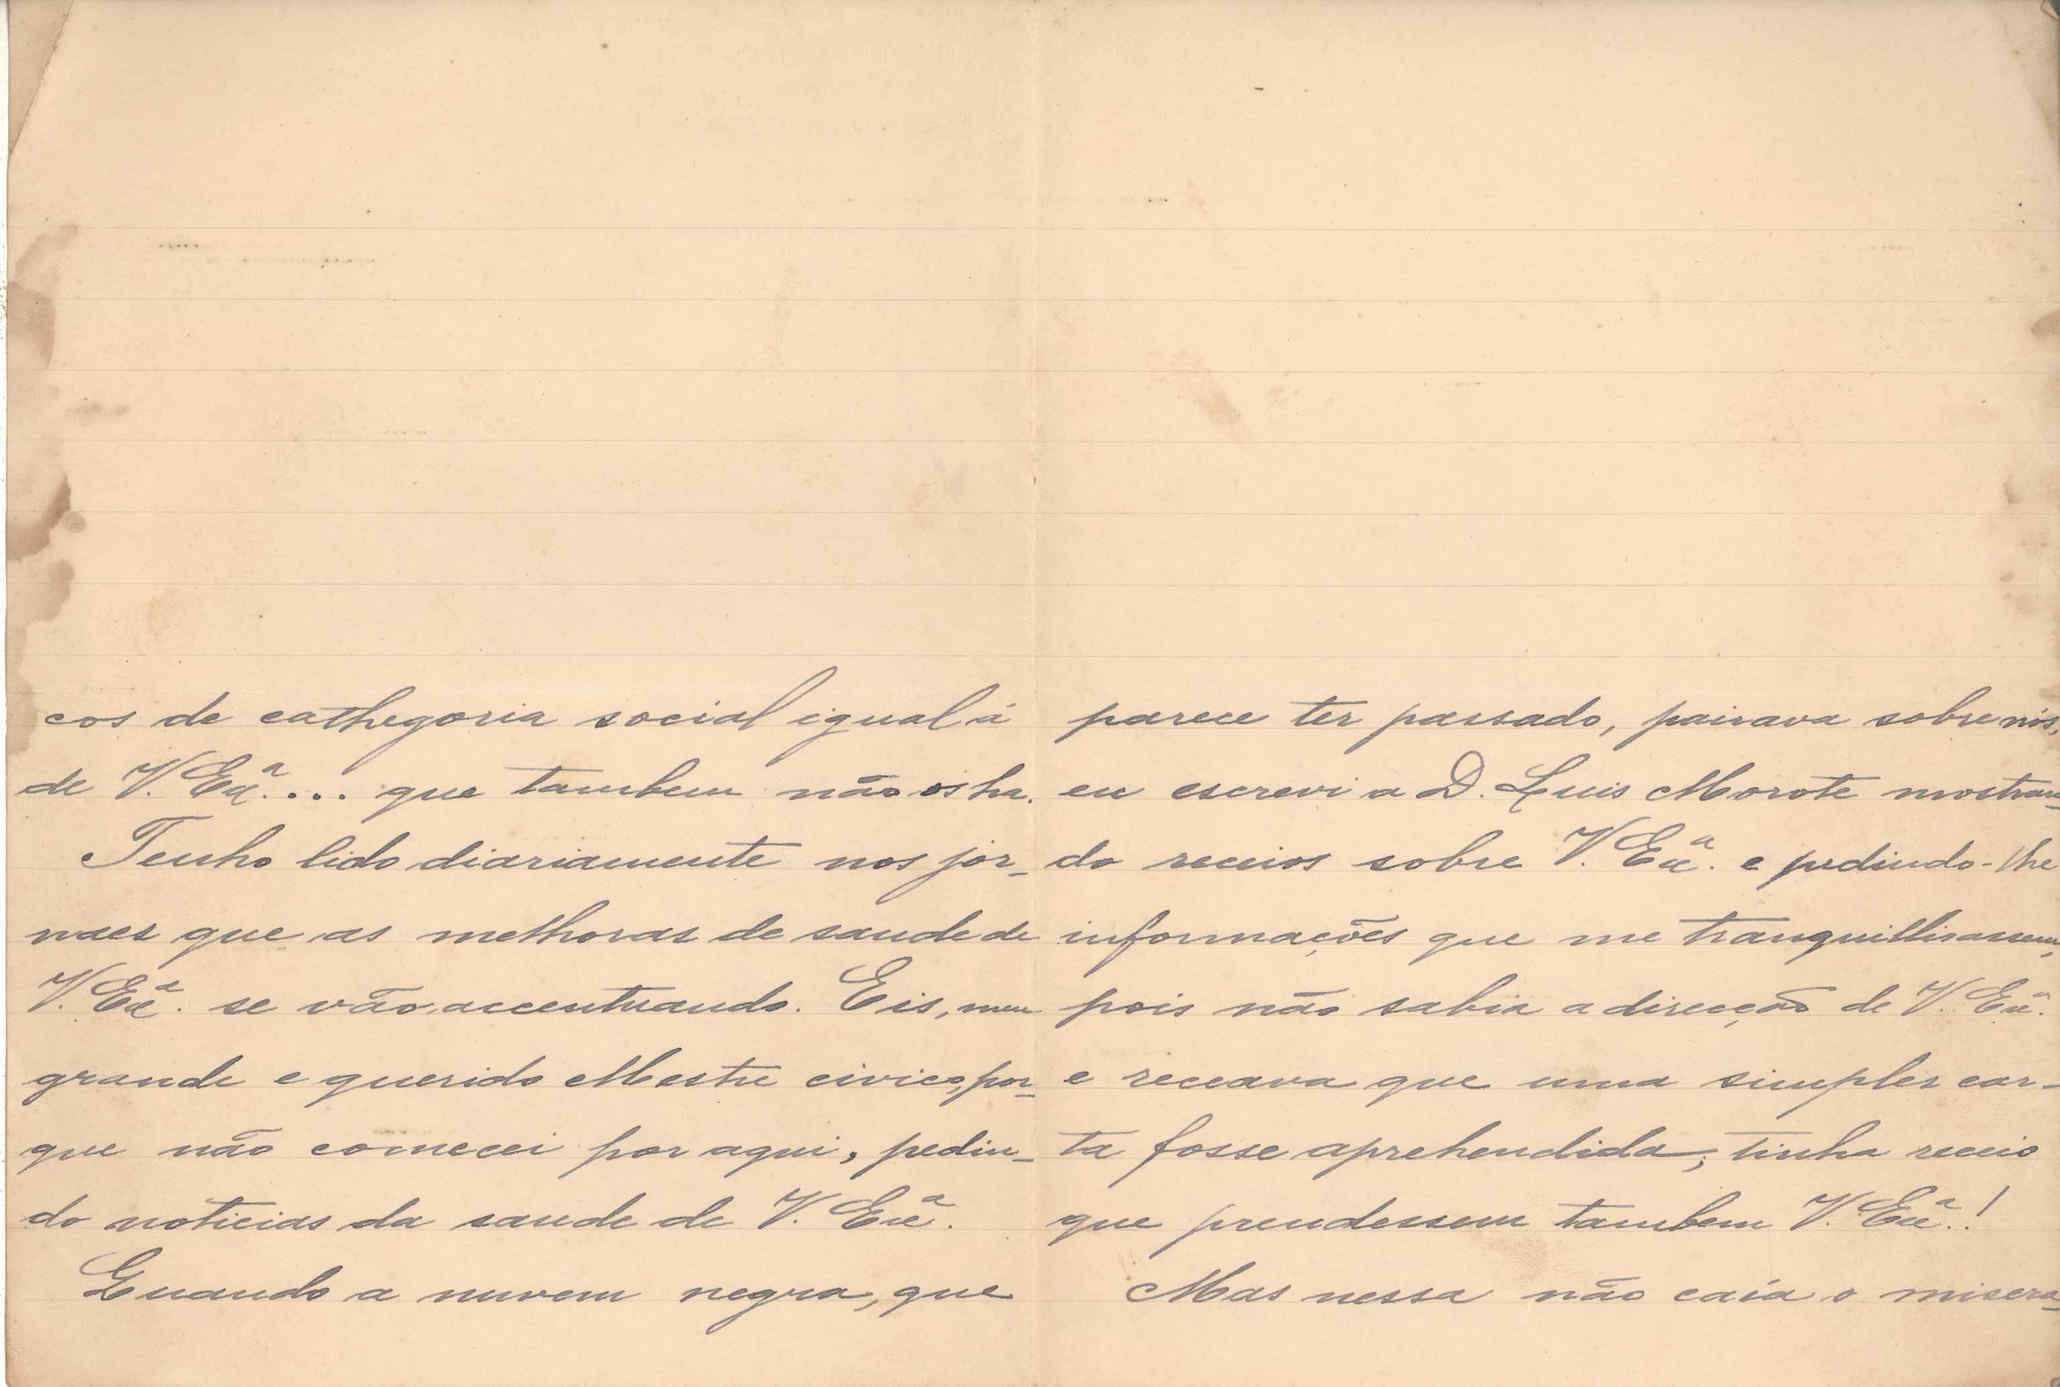 cos de cathegoria social igual á
de V. Exª.... que tambem não os ha.
Tenho lido diariamente nos jor-
naes que as melhoras de saude de
V. Exª. se vão accentuando. Eis, meu
grande e querido Mestre civico, por-
que não comecei por aqui, pedin-
do noticias da saude de V. Exª.
Quando a nuvem negra, que
parece ter passado, pairava sobre nós,
eu escrevi a D. Luis Morote mostran-
do receios sobre V. Exª. e pedindo-lhe
informações que me tranquillisassem,
pois não sabia a direcção de V. Exª.
e receava que uma simples car-
ta fosse aprehendida; tinha receio
que prendessem tambem V. Exª.!
Mas nessa não caía o misera-